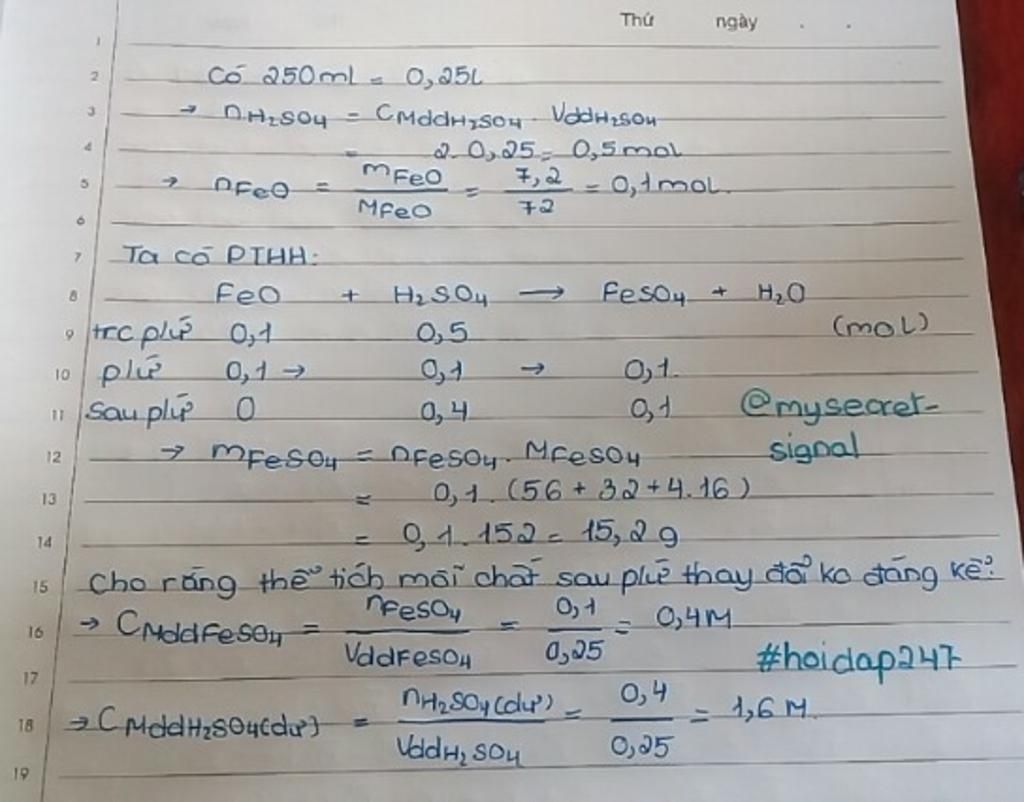 Thứ ngày . .
1
2 Có 250ml = 0,25L
3 → nH₂SO₄ = CMddH₂SO₄ . VddH₂SO₄
4 = 2.0,25 = 0,5mol
5 → nFeO = mFeO / MFeO = 7,2 / 72 = 0,1mol.
6
7 Ta có PTHH:
8 FeO + H₂SO₄ → FeSO₄ + H₂O
9 trc pứ 0,1 0,5 (mol)
10 pứ 0,1 → 0,1 → 0,1.
11 sau pứ 0 0,4 0,1 @mysecret-
signal
12 → mFeSO₄ = nFeSO₄ . MFeSO₄
13 = 0,1.(56+32+4.16)
14 = 0,1.152 = 15,2g
15 Cho rằng thể tích mỗi chất sau pứ thay đổi ko đáng kể:
16 → CMddFeSO₄ = nFeSO₄ / VddFeSO₄ = 0,1 / 0,25 = 0,4M
#hoidap247
17
18 → CMddH₂SO₄(dư) = nH₂SO₄(dư) / VddH₂SO₄ = 0,4 / 0,25 = 1,6M.
19